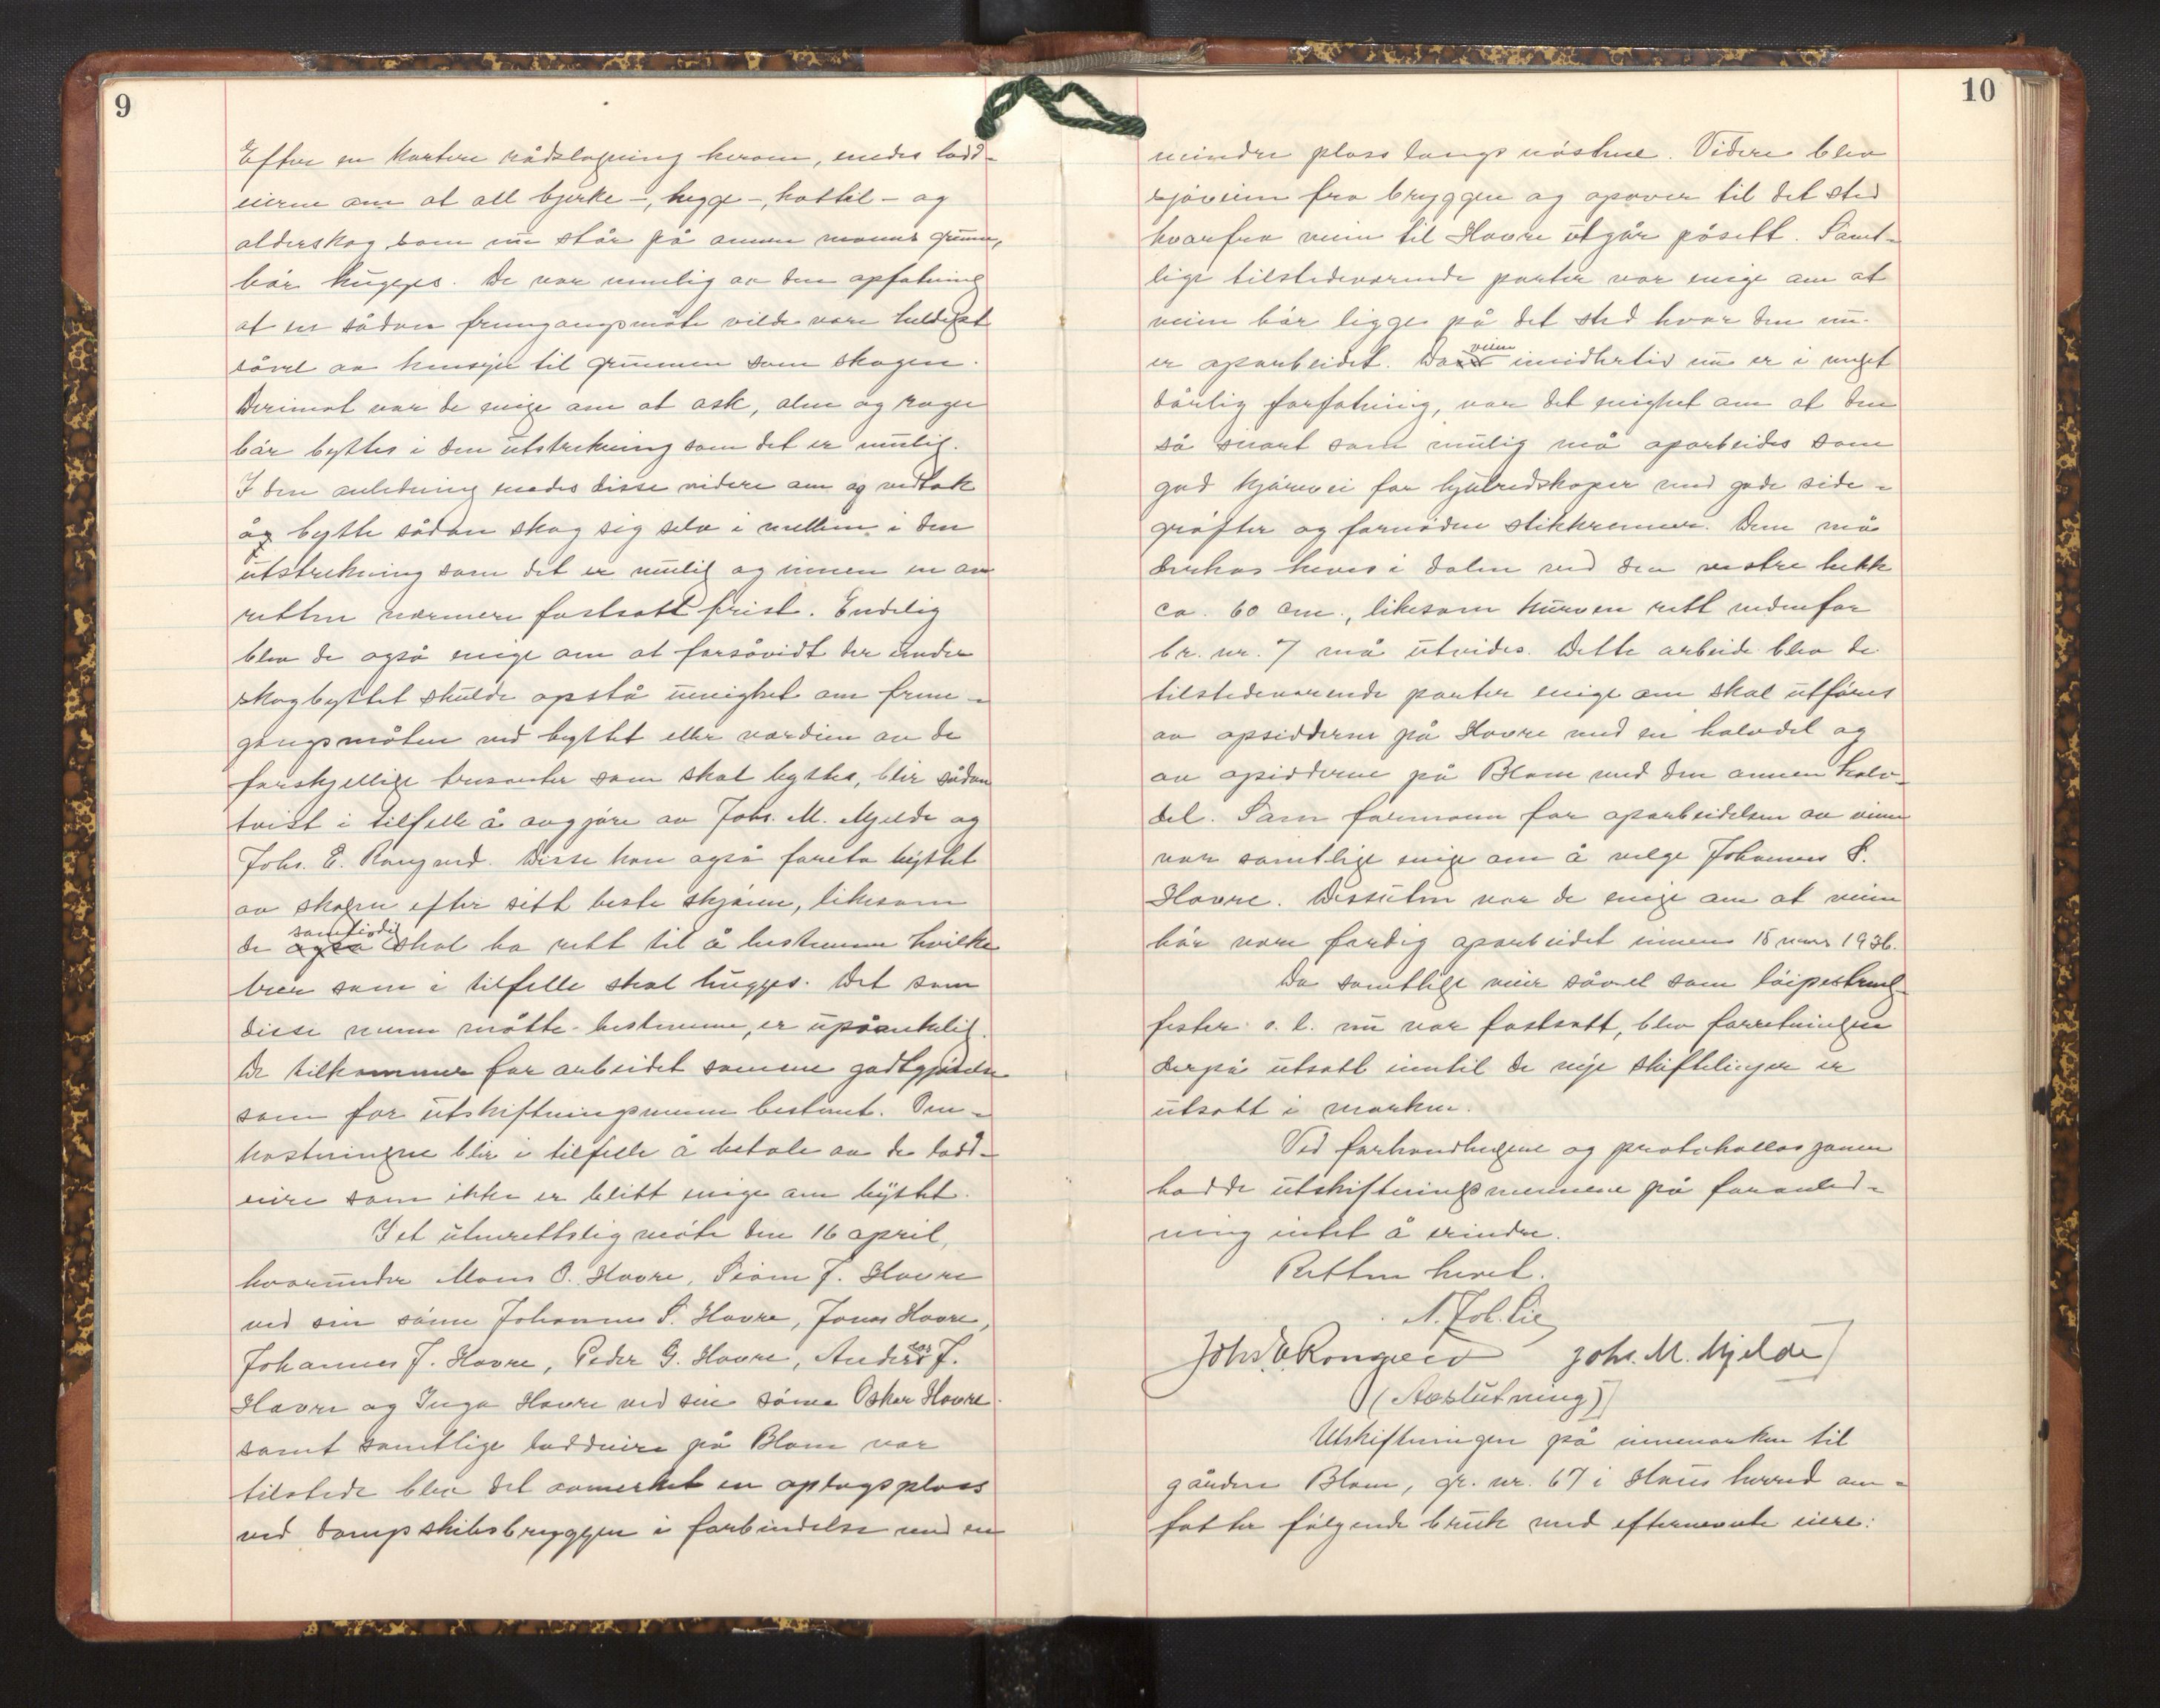 9
Efter en kortere rådslagning herom, enedes lodd-
eierne om at all bjerke-, hegge-, hattil- og
olderskog som nu står på annen manns grunn,
bør hugges. De var nemlig av den opfatning
at en sådan fremgangsmåte vilde være heldigst
såvel av hensyn til grunnen som skogen.
Derimot var de enige om at ask, alm og rogn
bør byttes i den utstrekning som det er mulig.
I den anledning enedes disse videre om og vedtok
å bytte sådan skog sig selv i mellem i den
utstrekning som det er mulig og innen en av
retten nærmere fastsatt frist. Endelig
blev de også enige om at forsåvidt der under
skogbyttet skulde opstå uenighet om frem-
gangsmåten ved byttet eller verdien av de
forskjellige tresorter som skal byttes, blir sådan
tvist i tilfelle å avgjøre av Johs. M. Mjelde og
Johs. E. Rongved. Disse kan også foreta byttet
av skogen efter sitt beste skjønn, likesom
de også samtidig skal ha rett til å bestemme hvilke
trær som i tilfelle skal hugges. Det som
disse menn måtte bestemme, er upåankelig.
De tilkommer for arbeidet samme godtgjørelse
som for utskiftningsmenn bestemt. Om-
kostningene blir i tilfelle å betale av de lodd-
eiere som ikke er blitt enige om byttet.
I et utenrettslig møte den 16 april,
hvorunder Mons O. Havre, Simon J. Havre
ved sin sønn Johannes S. Havre, Jonas Havre,
Johannes J. Havre, Peder G. Havre, Anders J.
Havre og Inga Havre ved sin sønn Oskar Havre
samt samtlige loddeiere på Blom var
tilstede blev det avmerket en oplagsplass
ved dampskibsbryggen i forbindelse med en
10
mindre plass langs nøstene. Videre blev
sjøveien fra bryggen og opover til det sted
hvorfra veien til Havre utgår påsett. Samt-
lige tilstedeværende parter var enige om at
veien bør ligge på det sted hvor den nu
er oparbeidet. Da veien imidlertid nu er i meget
dårlig forfatning, var det enighet om at den
så snart som mulig må oparbeides som
god kjørevei for hjulredskaper med gode side-
grøfter og fornøden stikkrenner. Den må
derhos heves i dalen ved den vestre bekk
ca. 60 cm., likesom kurven rett nedenfor
br. nr. 7 må utvides. Dette arbeide blev de
tilstedeværende parter enige om skal utføres
av opsidderne på Havre med en halvdel og
av opsidderne på Blom med den annen halv-
del. Som formann for oparbeidelsen av veien
var samtlige enige om å velge Johannes S.
Havre. Dessuten var de enige om at veien
bør være ferdig oparbeidet innen 15 mars 1936.
Da samtlige veier såvel som løipestreng-
fester o. l. nu var fastsatt, blev forretningen
derpå utsatt inntil de nye skiftelinjer er
utsatt i marken.
Ved forhandlingene og protokollasjonen
hadde utskiftningsmennene på foranled-
ning intet å erindre.
Retten hevet.
N. Joh. Lie
Johs. E. Rongved Johs. M. Mjelde
(Avslutning)
Utskiftningen på innmarken til
gården Blom, gr. nr. 67 i Haus herred om-
fatter følgende bruk med efternevnte eiere: